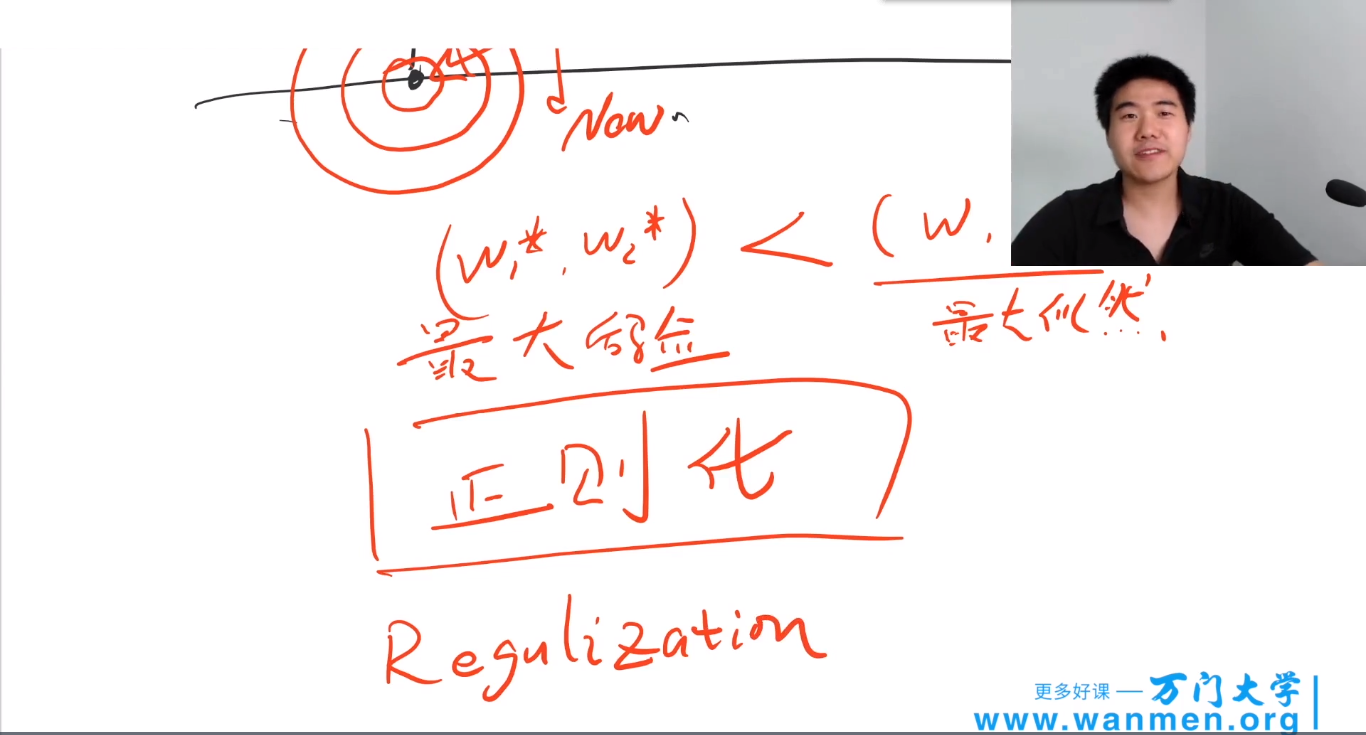 Now
(w₁*, w₂*) < (w₁
最大后验 最大似然
正则化
Regulization
更多好课 — 万门大学
www.wanmen.org